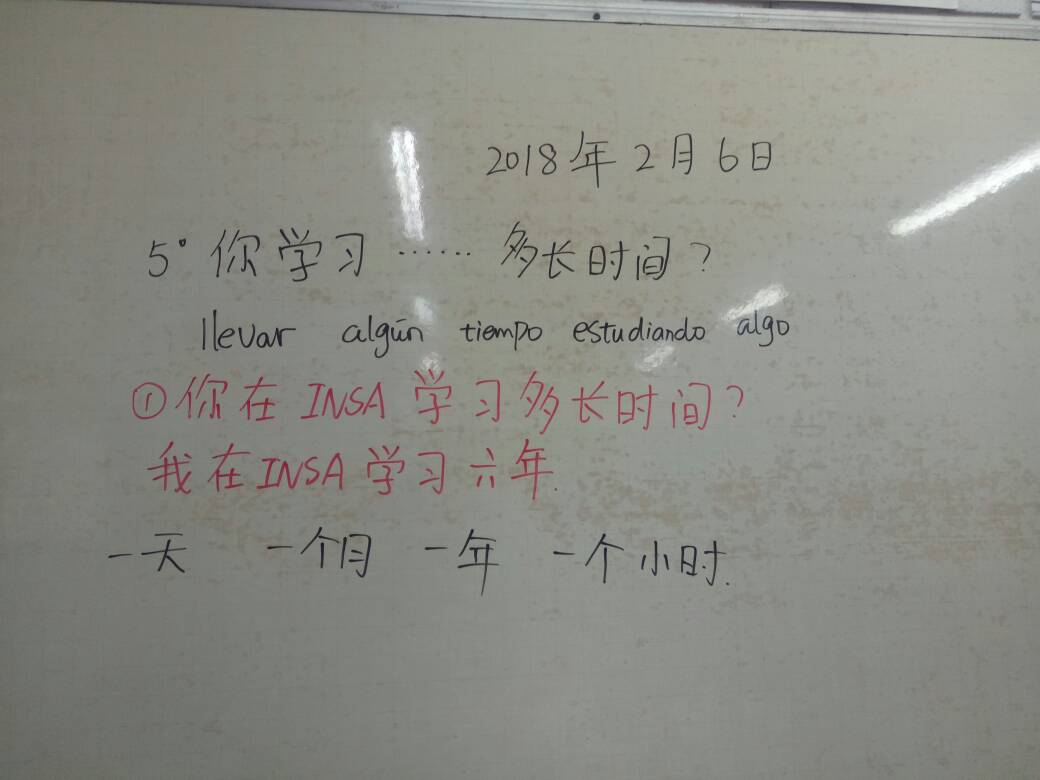 2018年2月6日
5° 你学习 …… 多长时间?
llevar algún tiempo estudiando algo
① 你在 INSA 学习多长时间?
我在 INSA 学习六年.
一天 一个月 一年 一个小时.